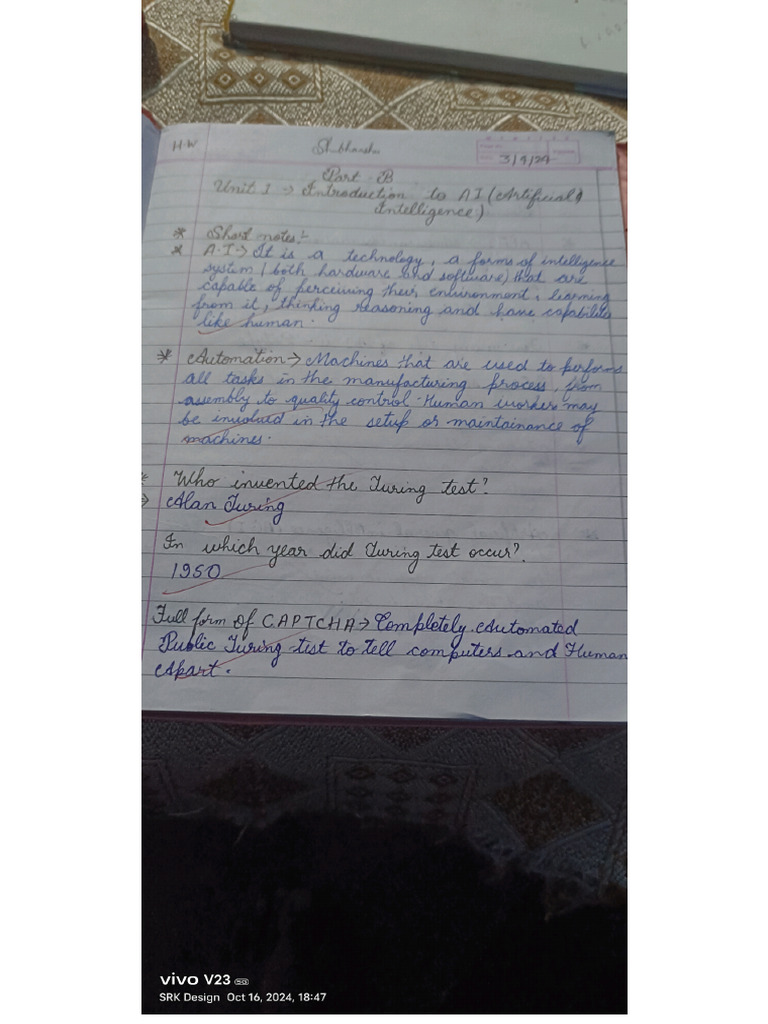 H.W
3/9/24
Part - B
Unit I → Introduction to AI (Artificial
Intelligence)
* Short notes:-
* A.I → It is a technology, a forms of intelligence
system (both hardware and software) that are
capable of perceiving their environment, learning
from it, thinking reasoning and have capabilities
like human.
* Automation → Machines that are used to perform
all tasks in the manufacturing process, from
assembly to quality control. Human workers may
be involved in the setup or maintainance of
machines.
* Who invented the Turing test?
→ Alan Turing
In which year did Turing test occur?
1950
Full form of CAPTCHA → Completely Automated
Public Turing test to tell computers and Human
Apart.
vivo V23 5G
SRK Design Oct 16, 2024, 18:47